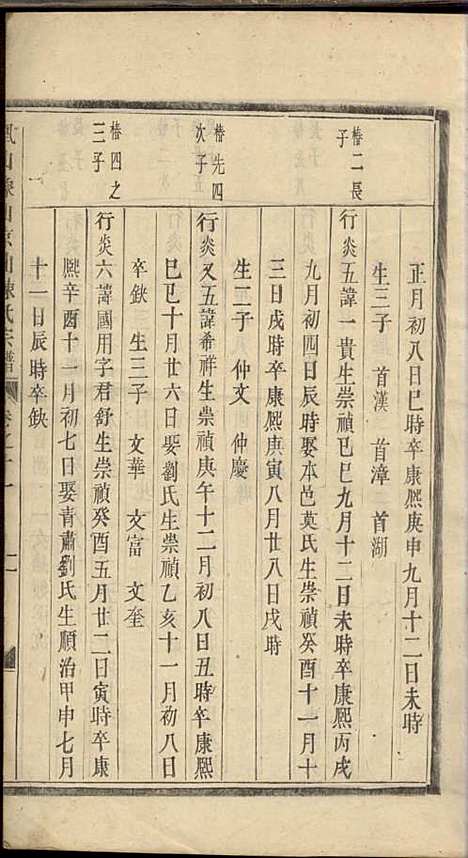 正月初八日巳時卒康熙庚申九月十二日未時
生三子　首漢　首漳　首湖
椿二長
子
行炎五諱一貴生崇禎己巳九月十二日未時卒康熙丙戌
九月初四日辰時娶本邑莫氏生崇禎癸酉十一月十
三日戌時卒康熙庚寅八月廿八日戌時
生二子　仲文　仲慶
椿先四
次子
行炎又五諱希祥生崇禎庚午十二月初八日丑時卒康熙
己巳十月廿六日娶劉氏生崇禎乙亥十一月初八日
卒缺　生三子　文華　文富　文奎
椿四之
三子
行炎六諱國用字君舒生崇禎癸酉五月廿二日寅時卒康
熙辛酉十一月初七日娶青肅劉氏生順治甲申七月
十一日辰時卒缺
山陳氏宗譜